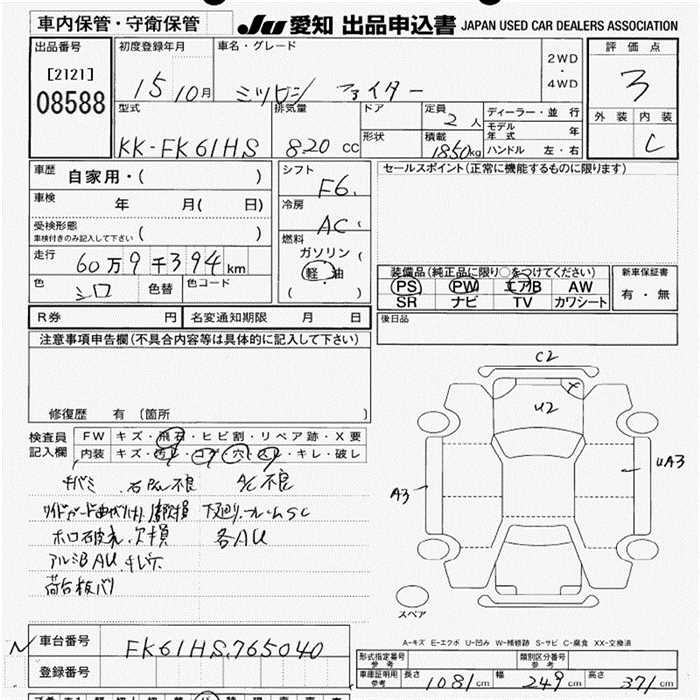 車内保管・守衛保管
JU 愛知 出品申込書 JAPAN USED CAR DEALERS ASSOCIATION
出品番号
[2121]
08588
初度登録年月
15 10月
車名・グレード
ミツビシ ファイター
2WD
・
4WD
評価点
3
外装 内装
C
型式
KK-FK61HS
排気量
820 cc
ドア
形状
定員
2人
積載
1850kg
ディーラー・並行
モデル年式 年
ハンドル 左・右
車歴
自家用・( )
車検 年 月( 日)
受検形態
車検付きのみ記入して下さい ( )
走行
60万9千394km
色 シロ 色替 色コード
シフト
F6.
冷房
AC
燃料
ガソリン
軽・油
( )
セールスポイント(正常に機能するものに限ります)
装備品(純正品に限り○をつけてください)
PS PW エアB AW
SR ナビ TV カワシート
新車保証書
有・無
R券 円 名変通知期限 月 日
後日品
注意事項申告欄(不具合内容等は具体的に記入して下さい)
修復歴 有(箇所 )
検査員
記入欄
FW キズ・飛石・ヒビ割・リペア跡・X要
内装 キズ・汚れ・コゲ・穴・スレ・キレ・破レ
キバミ 右PW不良 A/C不良
サイドガード曲がり 欠損 下廻り.フレームSC
ホロ破れ.欠損 各AU
アルミB AU.キレツ
荷台板バリ
C2
U2
A3
UA3
スペア
A-キズ E-エクボ U-凹み W-補修跡 S-サビ C-腐食 XX-交換済
N 車台番号 FK61HS.765040
登録番号
形式指定番号
参考
類別区分番号
参考
車庫証明用
参考
長さ 1081cm 幅 249cm 高さ 371cm